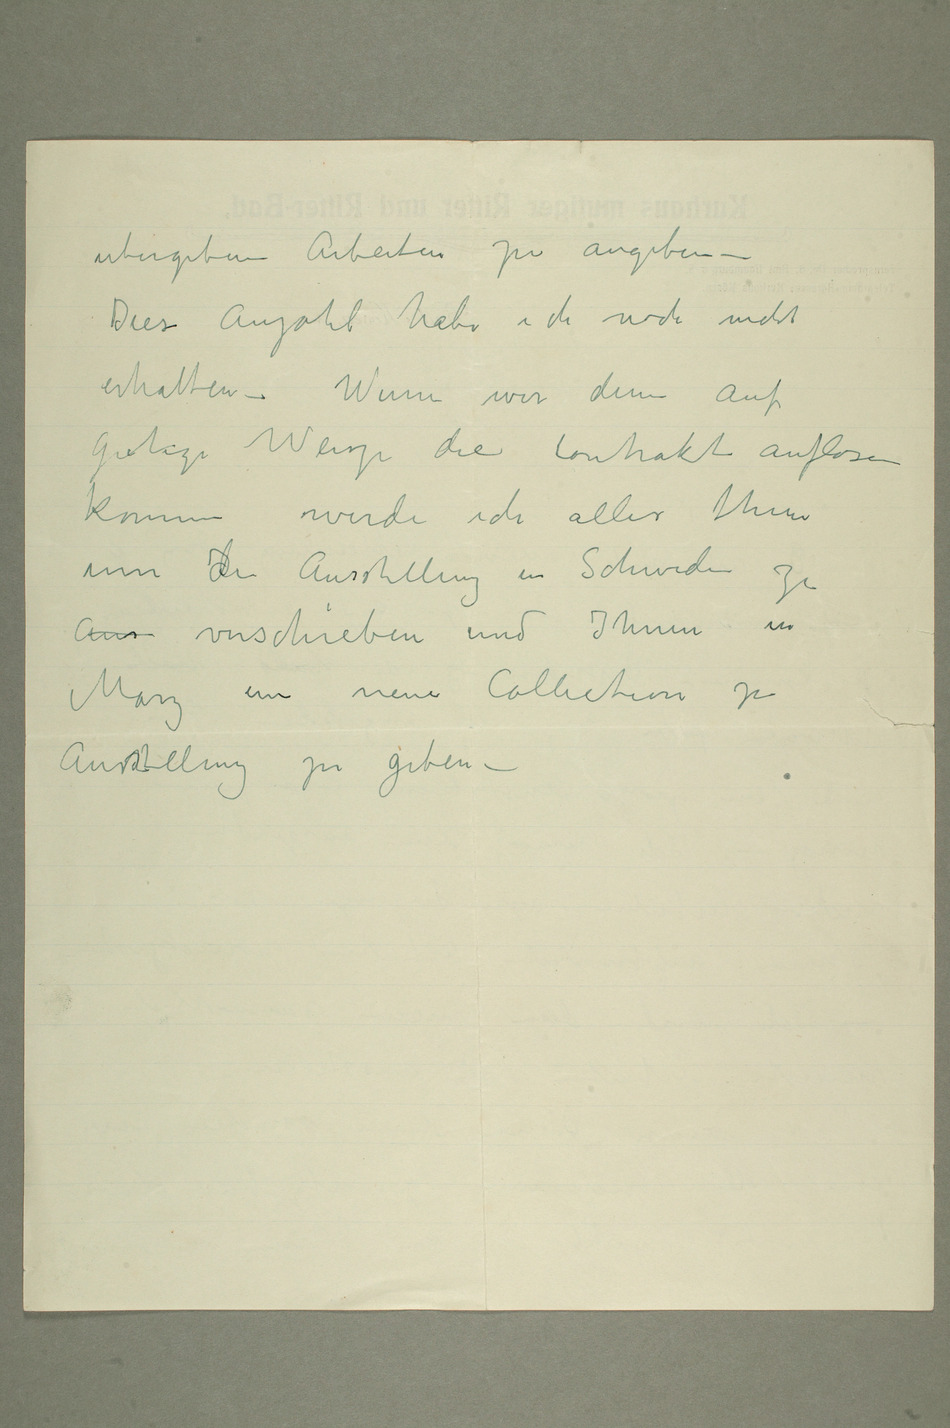 Kurhaus mutiger Ritter und Ritter-Bad.
übergebene Arbeiten zu angeben —
Dies Anzahl habe ich noch nicht
erhalten — Wenn wir denn auf
gütige Weise die Contrakt auflösen
können werde ich alles thun
um die Ausstellung in Schweden zu
aus verschieben und Ihnen in
März ein neue Collection zu
Ausstellung zu geben —